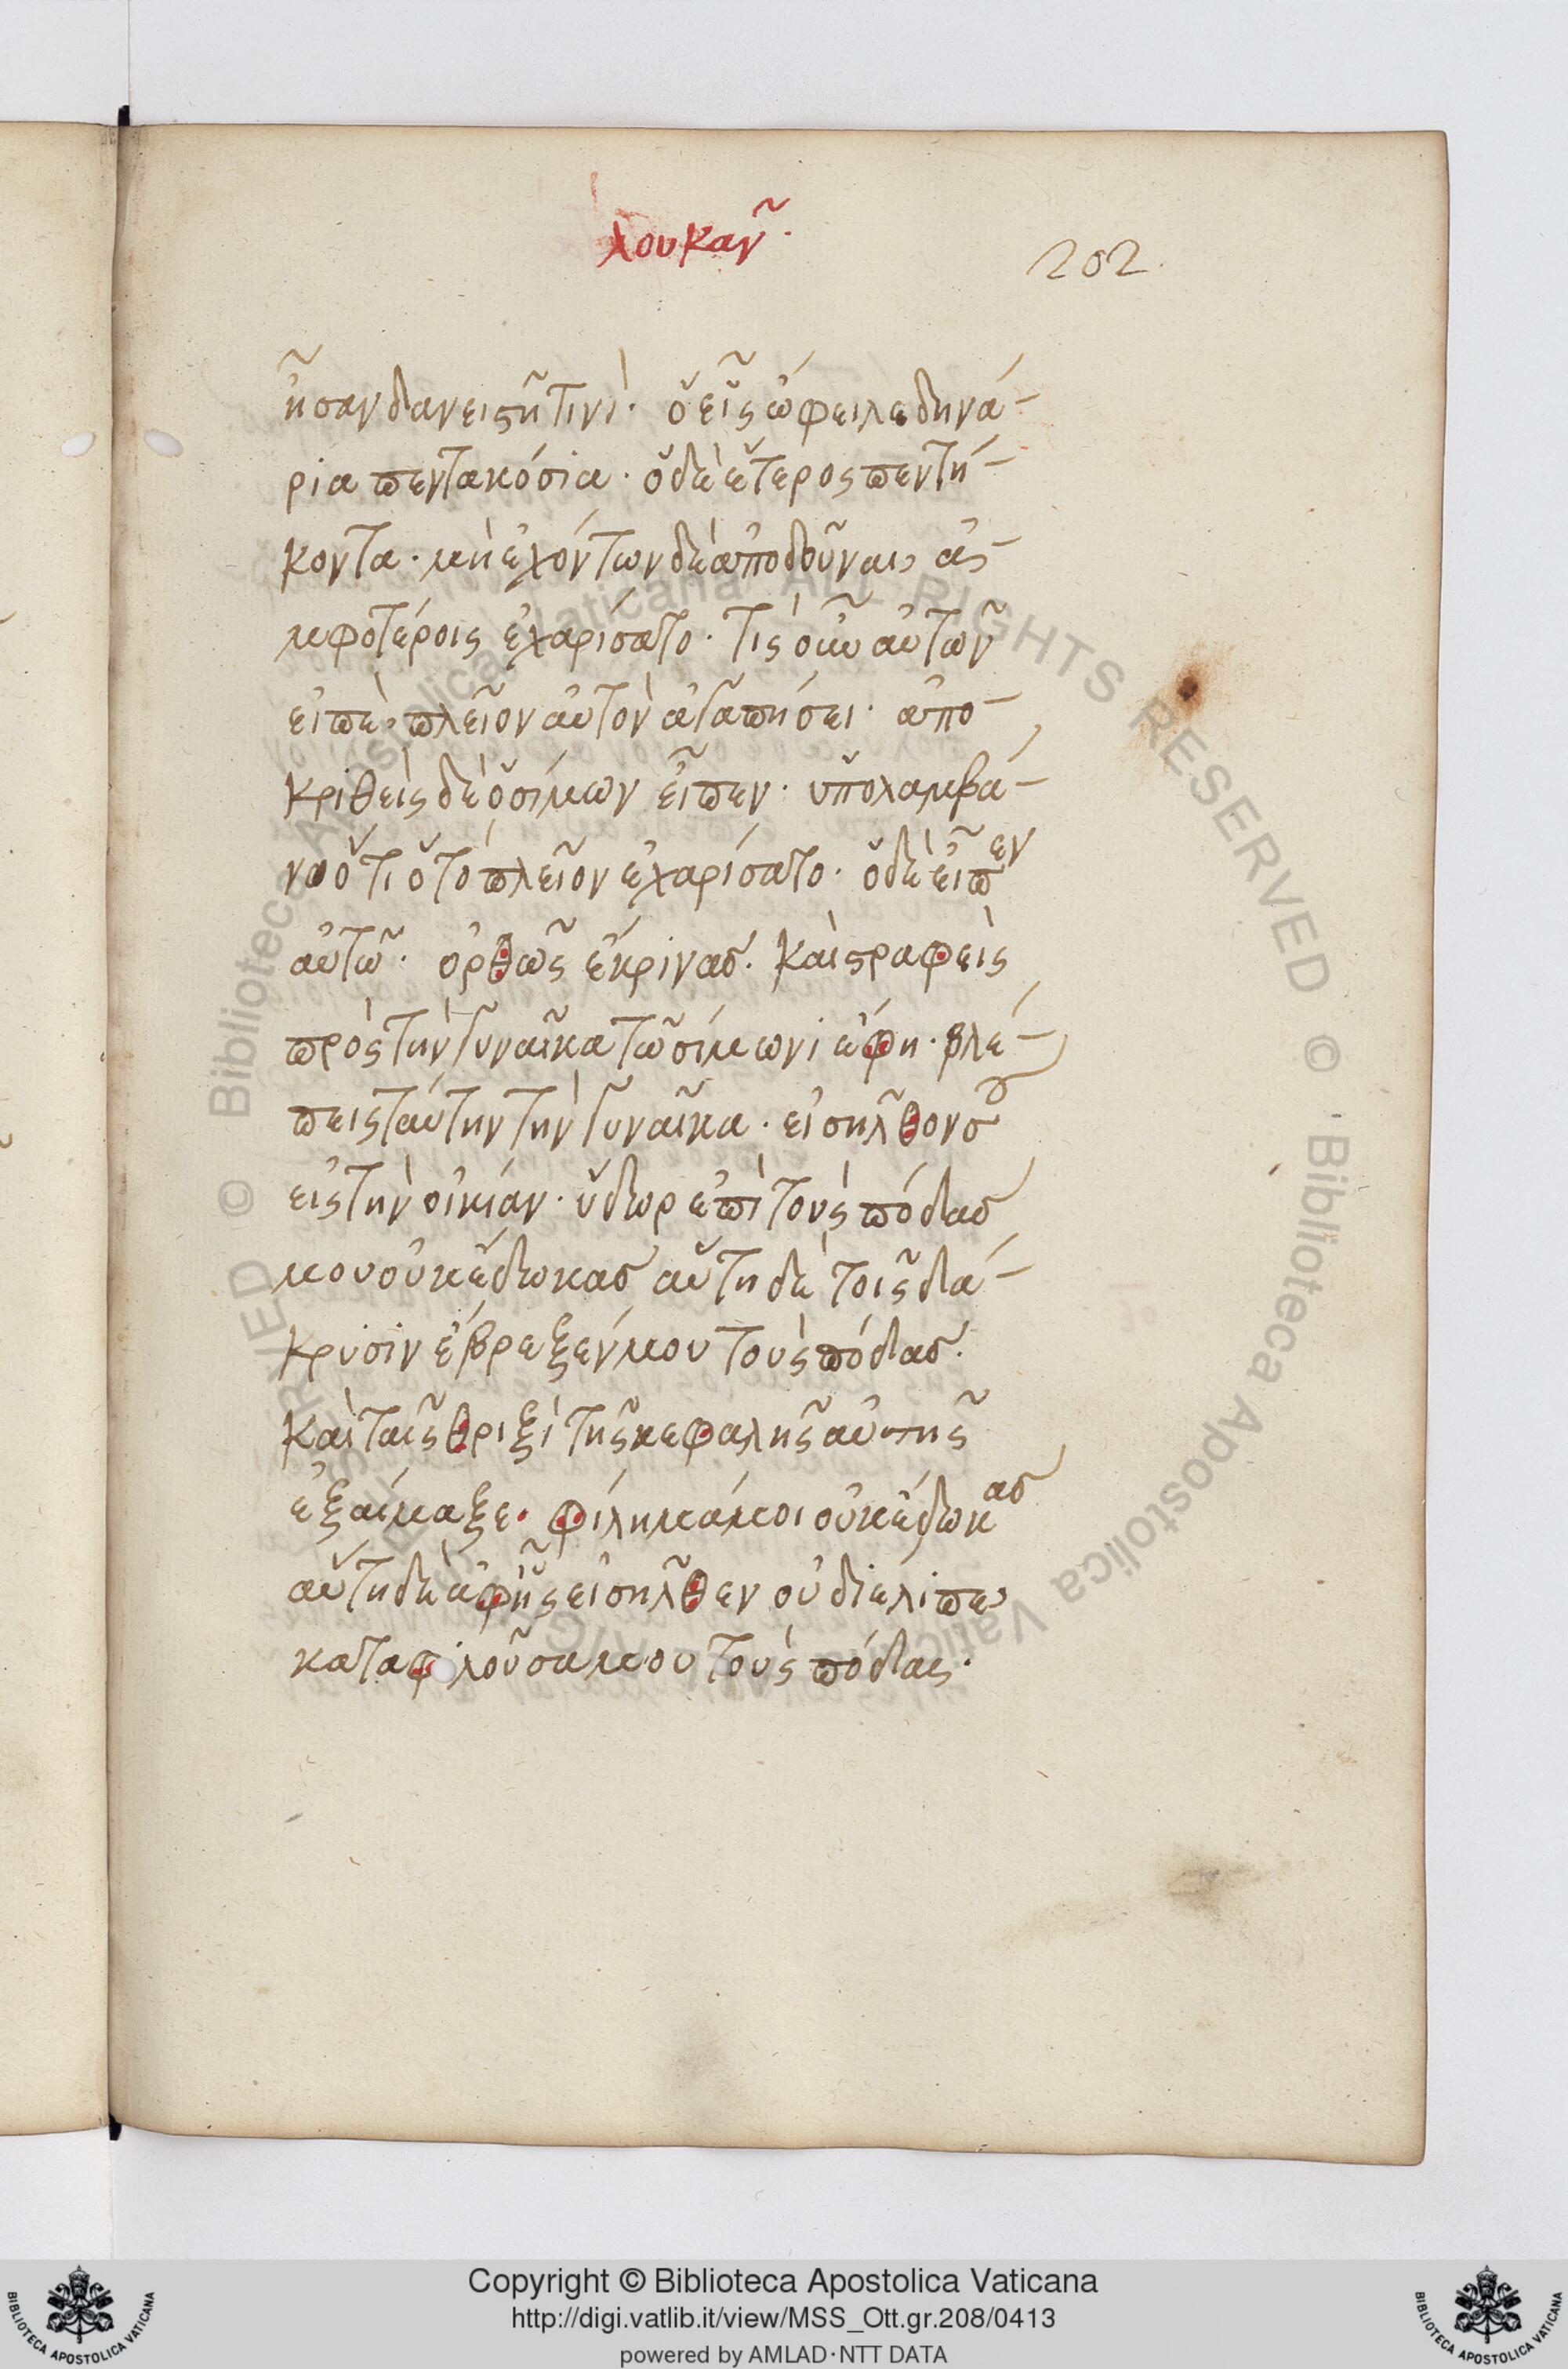 λουκᾶν.
202.
ἦσαν δανεισῆ τινί· ὃ εἷς ὤφειλε δηνά-
ρια πεντακόσια· ὃ δὲ ἕτερος πεντή-
κοντα· μὴ ἐχόντων δὲ ἀποδοῦναι, ἀ-
μφοτέροις ἐχαρίσατο· τὶς οὖν αὐτῶν
εἰπὲ, πλεῖον αὐτὸν ἀγαπήσει· ἀπο-
κριθεὶς δὲ ὁ σίμων εἶπεν· ὑπολαμβά-
νω ὅτι ὅ τὸ πλεῖον ἐχαρίσατο· ὁ δὲ εἶπεν
αὐτῶ· ὀρθῶς ἔκρινας. καὶ στραφεὶς
πρὸς τὴν γυναῖκα τῶ σίμωνι ἔφη· βλέ-
πεις ταύτην τὴν γυναῖκα· εἰσῆλθον σου
εἰς τὴν οἰκίαν· ὕδωρ ἐπὶ τοὺς πόδας
μου οὐκ ἔδωκας αὕτη δὲ τοῖς δά-
κρυσιν ἔβρεξέν μου τοὺς πόδας.
καὶ ταῖς θριξὶ τῆς κεφαλῆς αὐτῆς
ἐξέμαξε· φίλημά μοι οὐκ ἔδωκας
αὕτη δὲ ἀφ' ἧς εἰσῆλθεν οὐ διέλιπε,
καταφιλοῦσα μου τοὺς πόδας·
Copyright © Biblioteca Apostolica Vaticana
http://digi.vatlib.it/view/MSS_Ott.gr.208/0413
powered by AMLAD·NTT DATA
BIBLIOTECA APOSTOLICA VATICANA
BIBLIOTECA APOSTOLICA VATICANA